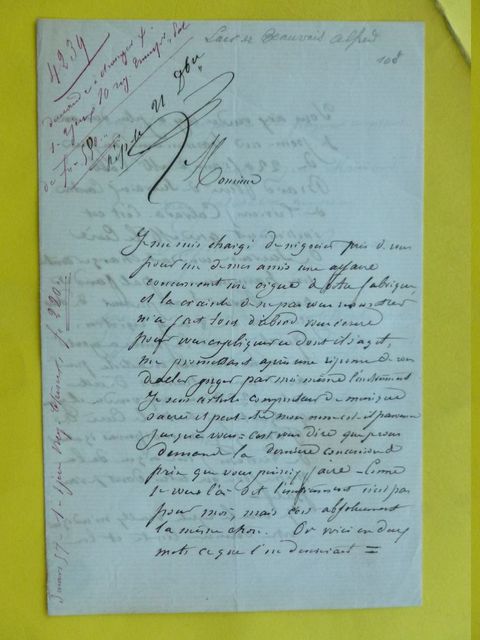 4239
Beauvais Alfred
108
21
Monsieur
Je me suis chargé de négocier près de vous
pour un de mes amis une affaire
concernant un orgue de votre fabrique
et la crainte de ne pas vous rencontrer
m'a fait tout d'abord vous écrire
pour vous expliquer ce dont il s'agit,
me promettant après une réponse de vous
d'aller juger par moi même l'instrument
Je suis artiste compositeur de musique
sacrée et peut-être mon nom est-il parvenu
jusqu'à vous - c'est vous dire que je vous
demande la dernière concession de
prix que vous puissiez faire - Comme
je vous l'ai dit l'instrument n'est pas
pour moi, mais c'est absolument
la même chose. Or voici en deux
mots ce que l'on désirerait =